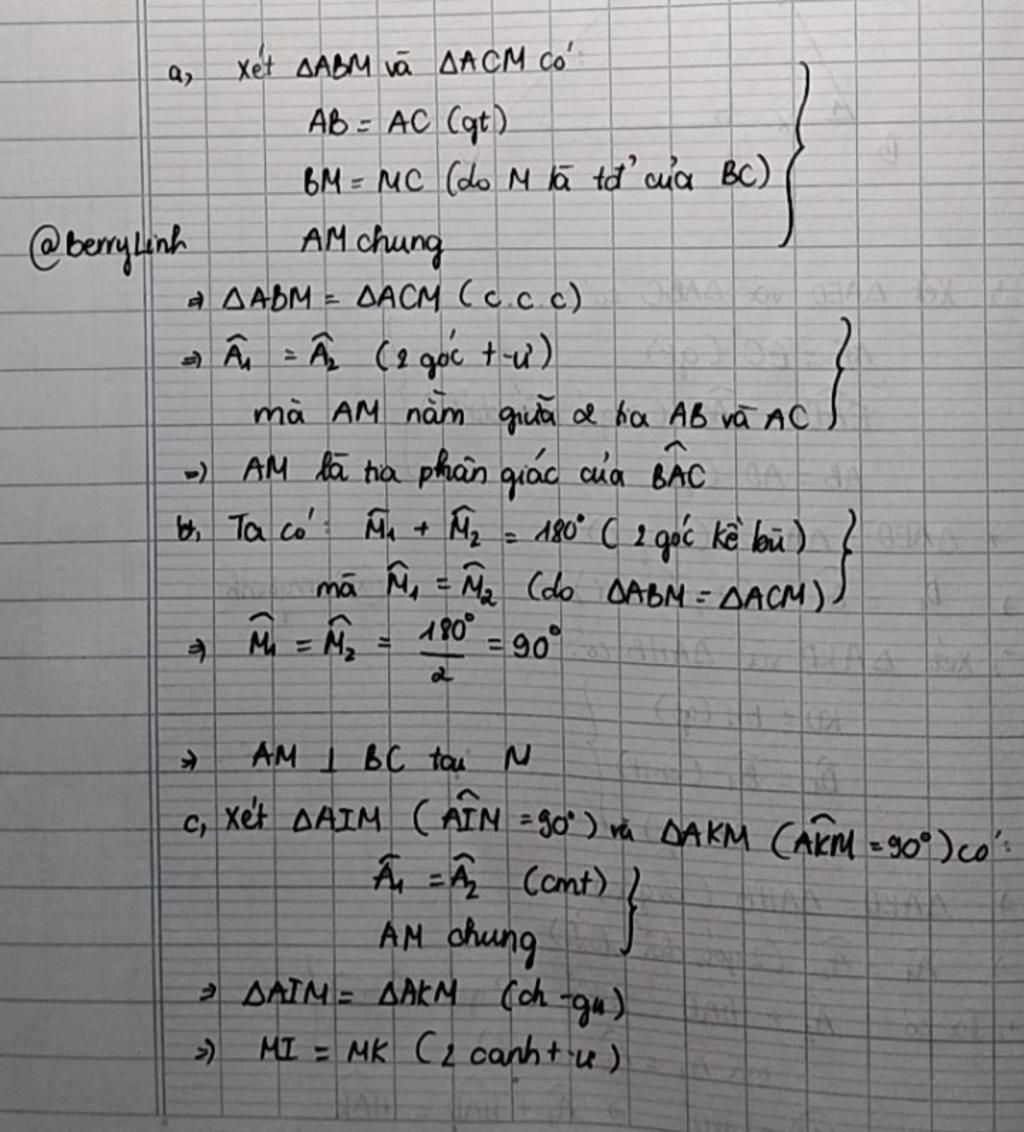 a, Xét ΔABM và ΔACM có
AB = AC (gt)
BM = MC (do M là tđ' của BC)
@berrylinh
AM chung
⇒ ΔABM = ΔACM (c.c.c)
⇒ Â₁ = Â₂ (2 góc t-ư)
mà AM nằm giữa 2 tia AB và AC
⇒ AM là tia phân giác của BÂC
b, Ta có: M̂₁ + M̂₂ = 180° (2 góc kề bù)
mà M̂₁ = M̂₂ (do ΔABM = ΔACM)
⇒ M̂₁ = M̂₂ = 180°/2 = 90°
⇒ AM ⊥ BC tại M
c, Xét ΔAIM (AÎM = 90°) và ΔAKM (AK̂M = 90°) có:
Â₁ = Â₂ (cmt)
AM chung
⇒ ΔAIM = ΔAKM (ch-gn)
⇒ MI = MK (2 cạnh t-ư)